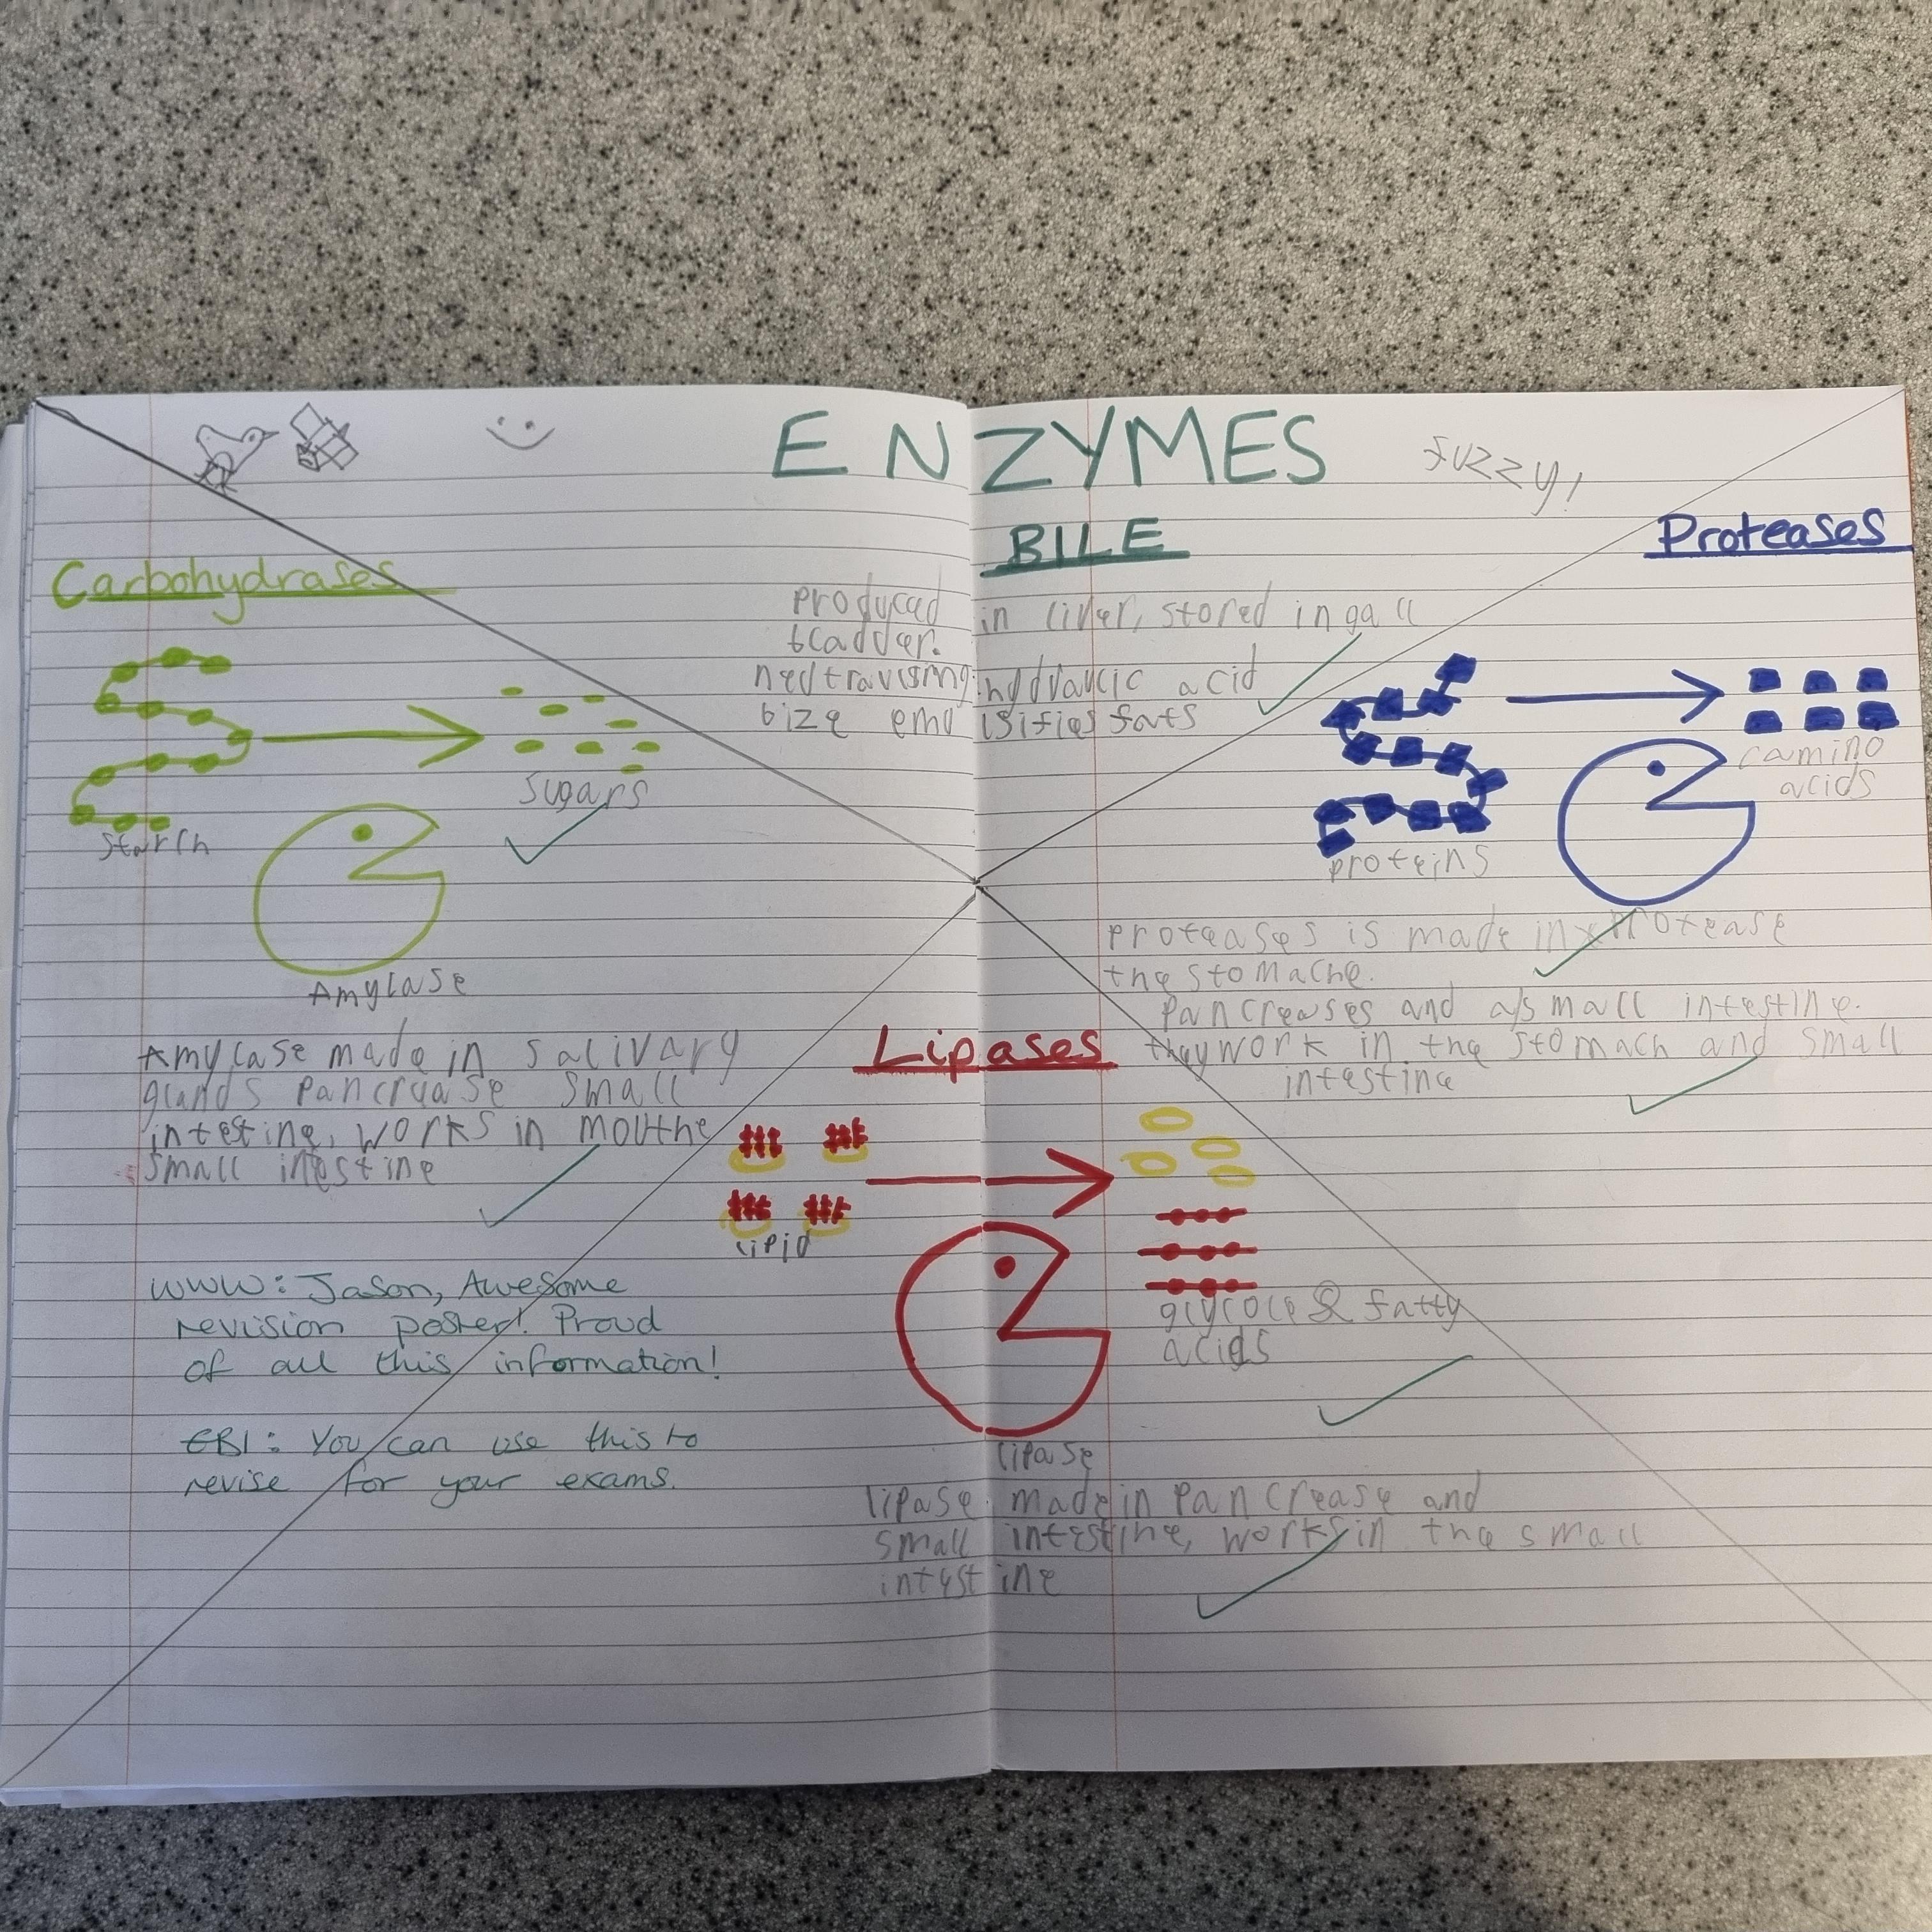 ENZYMES
fuzzy!
BILE
produced in liver, stored in gall
bladder.
hydraulic acid
emulsifies fats
Carbohydrases
Sugars
Starch
Amylase
Amylase made in salivary
glands pancrease small
intestine, works in mouthe
small intestine
Proteases
amino
acids
proteins
proteases is made in protease
the stomache.
pancreases and small intestine.
they work in the stomach and small
intestine
Lipases
lipid
& fatty
acids
lipase
lipase made in pancrease and
small intestine, works in the small
intestine
WWW: Jason, Awesome
revision poster! Proud
of all this information!
EBI: You can use this to
revise for your exams.